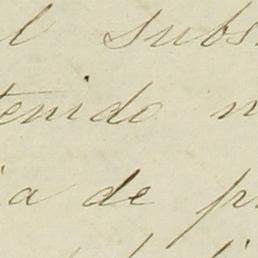 l subs
tenido n
ia de p